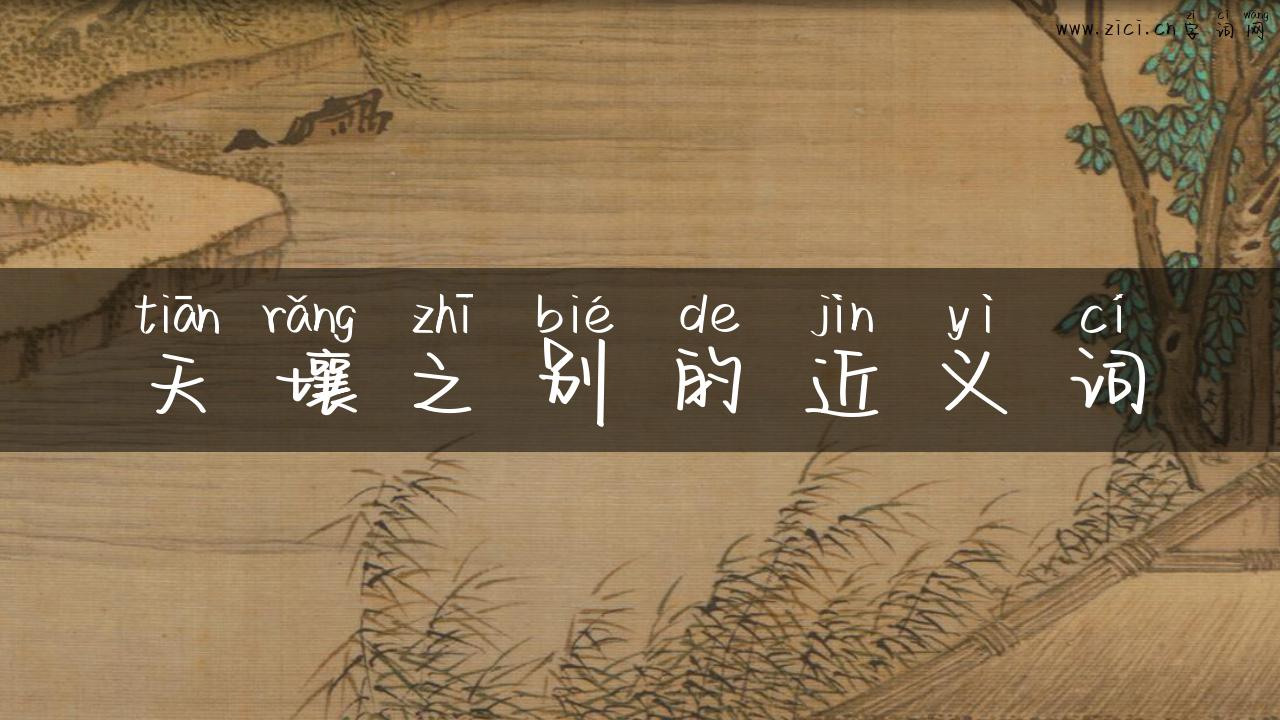 zì cí wǎng
www.zici.cn字词网
tiān rǎng zhī bié de jìn yì cí
天壤之别的近义词